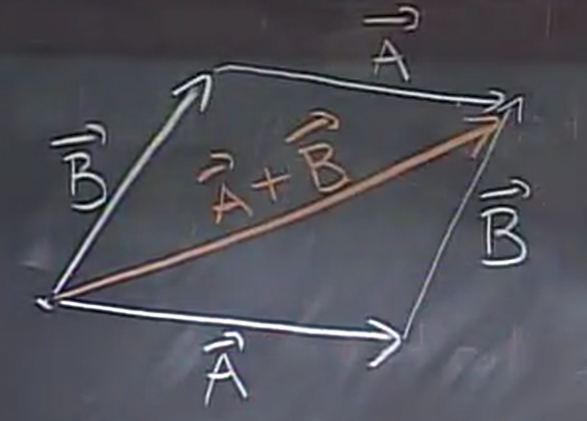 $\vec{A}$
$\vec{B}$
$\vec{A}+\vec{B}$
$\vec{B}$
$\vec{A}$